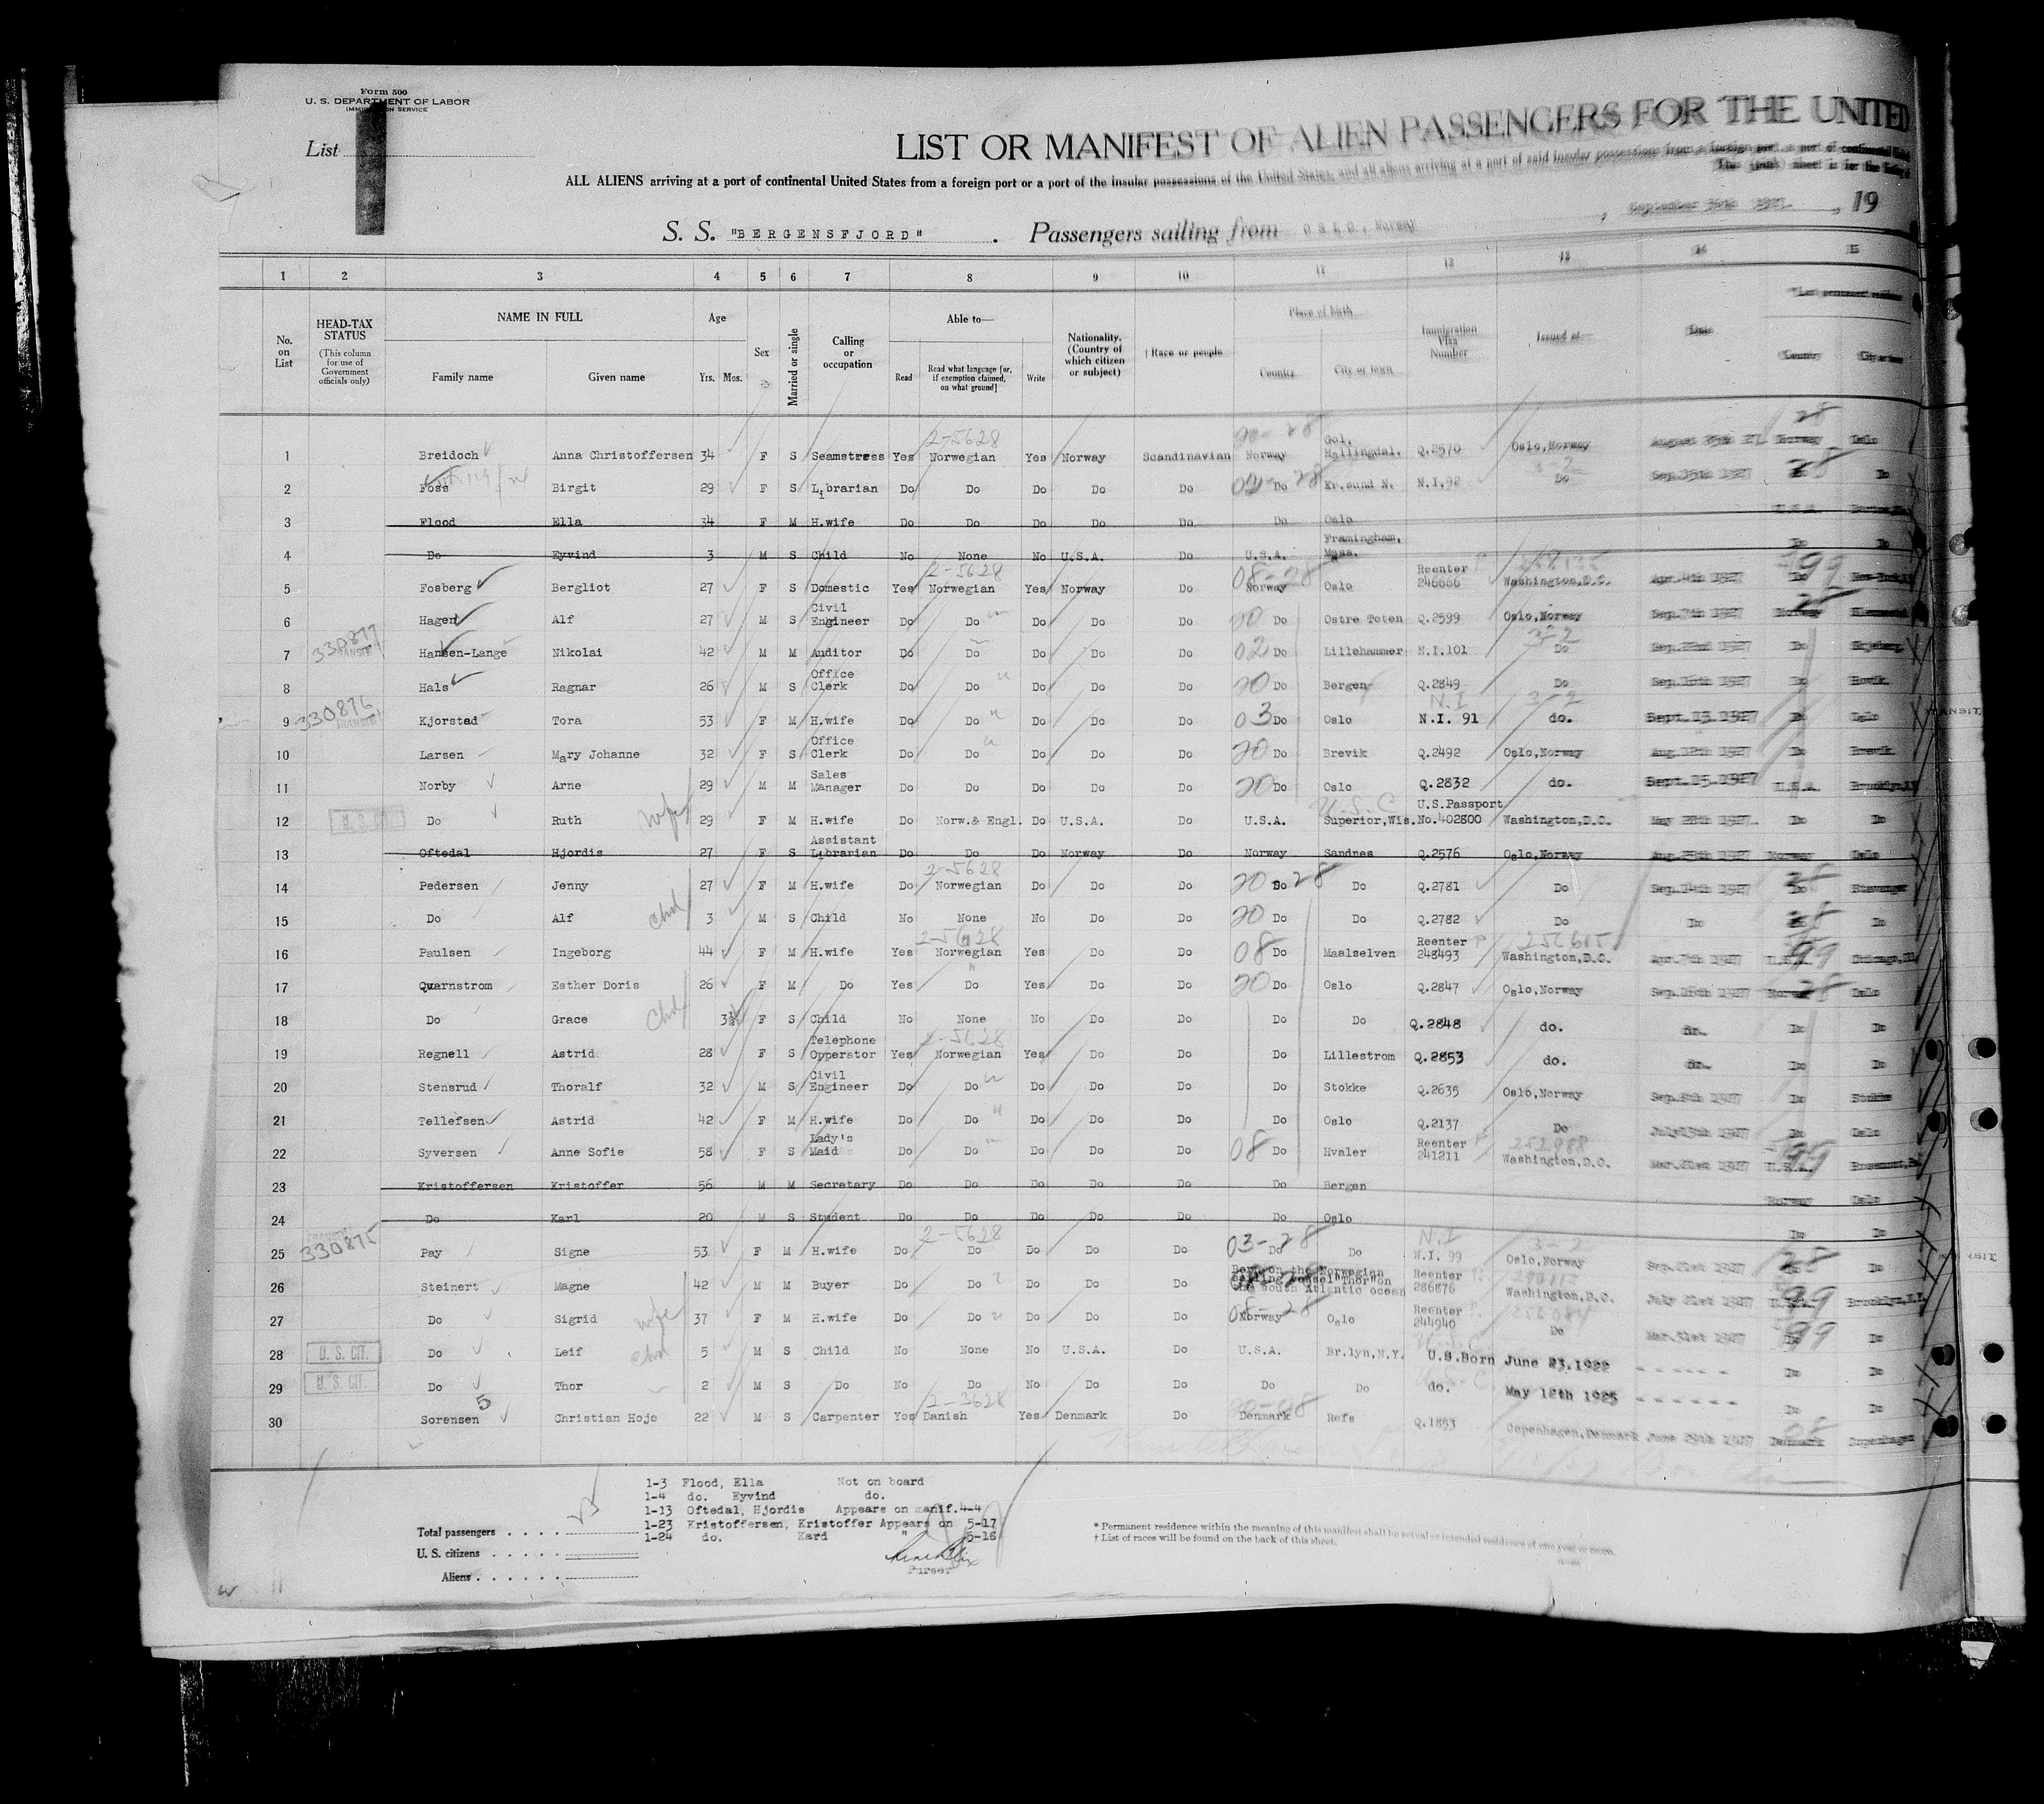 Form 500
U. S. DEPARTMENT OF LABOR
IMMIGRATION SERVICE
List
LIST OR MANIFEST OF ALIEN PASSENGERS FOR THE UNITED
ALL ALIENS arriving at a port of continental United States from a foreign port or a port of the insular possessions of the United States, and all aliens arriving at a port of said insular possessions from a foreign port, a port of continental
S. S. "BERGENSFJORD" . Passengers sailing from Oslo, Norway , September 1927 , 19
1 2 3 4 5 6 7 8 9 10 11 12 13 14 15
No. on List
HEAD-TAX STATUS (This column for use of Government officials only)
NAME IN FULL Family name Given name
Age Yrs. Mos.
Sex
Married or single
Calling or occupation
Able to— Read Read what language [or, if exemption claimed, on what ground] Write
Nationality. (Country of which citizen or subject)
† Race or people
Place of birth Country City or town
Immigration Visa Number
Issued at—
Date
*Last permanent residence Country City or town
2-5628 28
1 Breidoch Anna Christoffersen 34 F S Seamstress Yes Norwegian Yes Norway Scandinavian Norway Gol, Hallingdal. Q.2570 Oslo,Norway August Norway Oslo
2 Foss Birgit 29 F S Librarian Do Do Do Do Do 02 Do 28 Kr.sund N. N.I.92 Do Sep.15th 1927 28 Do
3 Flood Ella 34 F M H.wife Do Do Do Do Do Do Oslo U.S.A.
4 Do Eyvind 3 M S Child No None No U.S.A. Do U.S.A. Framingham, Mass. Do Do
2-5628 08-28
5 Fosberg Bergliot 27 F S Domestic Yes Norwegian Yes Norway Do Norway Oslo Reenter 246666 Washington,D.C. Apr.4th 1927 Do 99 New York
6 Hagen Alf 27 M S Civil Engineer Do Do Do Do Do 20 Do Ostre Toten Q.2599 Oslo,Norway Sep.7th 1927 Norway
330877 TRANSIT
7 Hansen-Lange Nikolai 42 M M Auditor Do Do Do Do Do 02 Do Lillehammer N.I.101 3-2 Do Sep.22nd 1927 Do
8 Hals Ragnar 26 M S Office Clerk Do Do Do Do Do 20 Do Bergen Q.2849 Do 1927 Do Hovik.
330876 TRANSIT
9 Kjorstad Tora 53 F M H.wife Do Do Do Do Do 03 Do Oslo N.I N.I. 91 3-2 do. Sept.13.1927 Do Oslo TRANSIT
10 Larsen Mary Johanne 32 F S Office Clerk Do Do Do Do Do 20 Do Brevik Q.2492 Oslo,Norway Aug.12th 1927 Do Brevik.
11 Norby Arne 29 M M Sales Manager Do Do Do Do Do 20 Do Oslo Q.2832 do. Sept.15.1927 U.S.A. Brooklyn,N.Y.
12 U.S.CIT Do Ruth wife 29 F M H.wife Do Norw.& Engl. Do U.S.A. Do U.S.A. U.S.C Superior,Wis. U.S.Passport No.402800 Washington,D.C. May 28th 1927. Do Do
13 Oftedal Hjordis 27 F S Assistant Librarian Do Do Do Norway Do Norway Sandnes Q.2576 Oslo,Norway Aug.25th 1927 Norway Oslo
2-5628
14 Pedersen Jenny 27 F M H.wife Do Norwegian Do Do Do 20 Do 28 Do Q.2781 Do Sep.14th 1927 Do Stavanger
15 Do Alf chd 3 M S Child No None No Do Do 20 Do Do Q.2782 Do Do Do
2-5628
16 Paulsen Ingeborg 44 F M H.wife Yes Norwegian Yes Do Do 08 Do Maalselven Reenter P 248493 256615 Washington,D.C. Apr.7th 1927 U.S.A. 99 Chicago,Ill.
17 Quarnstrom Esther Doris 26 F M Do Yes Do Yes Do Do 20 Do Oslo Q.2847 Oslo,Norway 1927 Norway 28 Oslo
18 Do Grace chd 3½ F S Child No None No Do Do Do Do Q.2848 do. Do Do
2-5628
19 Regnell Astrid 28 F S Telephone Opperator Yes Norwegian Yes Do Do Do Lillestrom Q.2853 do. Do Do
20 Stensrud Thoralf 32 M S Civil Engineer Do Do Do Do Do Do Stokke Q.2635 Oslo,Norway Sep.8th 1927 Do Stokke
21 Tellefsen Astrid 42 F M H.wife Do Do Do Do Do Do Oslo Q.2137 Do July 1927 Do Oslo
22 Syversen Anne Sofie 58 F S Lady's Maid Do Do Do Do Do 08 Do Hvaler Reenter P 241211 252988 Washington,D.C. Mar.21st 1927 U.S.A. 99 Rosemont,Pa.
23 Kristoffersen Kristoffer 56 M M Secretary Do Do Do Do Do Do Bergen Norway Oslo
24 Do Karl 20 M S Student Do Do Do Do Do Do Oslo Do Do
TRANSIT 330875 2-5628 03-28
25 Pay Signe 53 F M H.wife Do Do Do Do Do Do Do N.I N.I. 99 3-2 Oslo,Norway Sep.21st 1927 28 Do
26 Steinert Magne 42 M M Buyer Do Do Do Do Do Born on the Norwegian sailing vessel"Thor"on the south Atlantic ocean Reenter 286876 Washington,D.C. July 21st 1927 U.S.A. 99 Brooklyn,N.Y.
27 Do Sigrid wife 37 F M H.wife Do Do Do Do Do 08-28 Norway Oslo Reenter P. 244940 256084 Do Mar.31st 1927 Do 99 Do
28 U. S. CIT. Do Leif chd 5 M S Child No None No U.S.A. Do U.S.A. Br.lyn,N.Y. U.S.Born June 23.1922 - - - - - - Do Do
29 U. S. CIT. Do Thor 2 M S Do No Do No Do Do Do Do do. May 12th 1925 - - - - - - Do Do
5 2-3628
30 Sorensen Christian Hojo 22 M S Carpenter Yes Danish Yes Denmark Do Denmark Refs Q.1853 Copenhagen,Denmark June 29th 1927 Denmark Copenhagen
1-3 Flood, Ella Not on board
1-4 do. Eyvind do.
1-13 Oftedal, Hjordis Appears on manif.4-4
1-23 Kristoffersen, Kristoffer Appears on 5-17
1-24 do. Kard " 5-18
Purser
Total passengers . . . . . 25
U. S. citizens . . . . . .
Aliens . . . . . .
* Permanent residence within the meaning of this manifest shall be actual or intended residence of one year or more.
† List of races will be found on the back of this sheet.